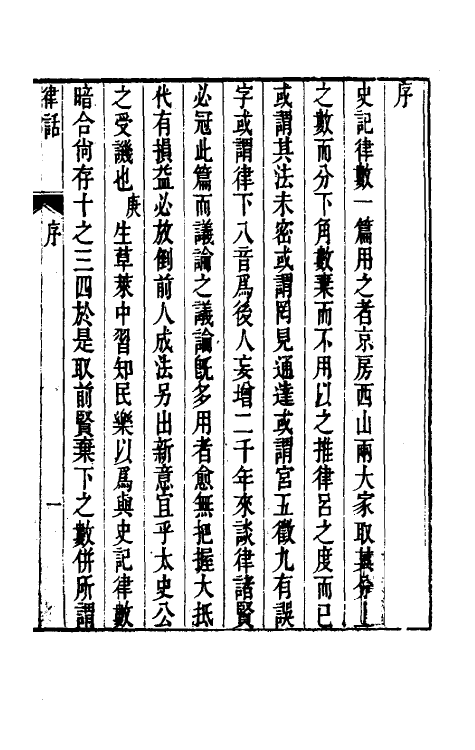 序
史記律數一篇用之者京房西山兩大家取其分上
之數而分下角數棄而不用以之推律呂之度而已
或謂其法未密或謂罔見通達或謂宮五徵九有誤
字或謂律下八音爲後人妄增二千年來談律諸賢
必冠此篇而議論之議論旣多用者愈無把握大抵
代有損益必放倒前人成法另出新意宜乎太史公
之受譏也庚生草萊中習知民樂以爲與史記律數
暗合尙存十之三四於是取前賢棄下之數併所謂
律話
序
一